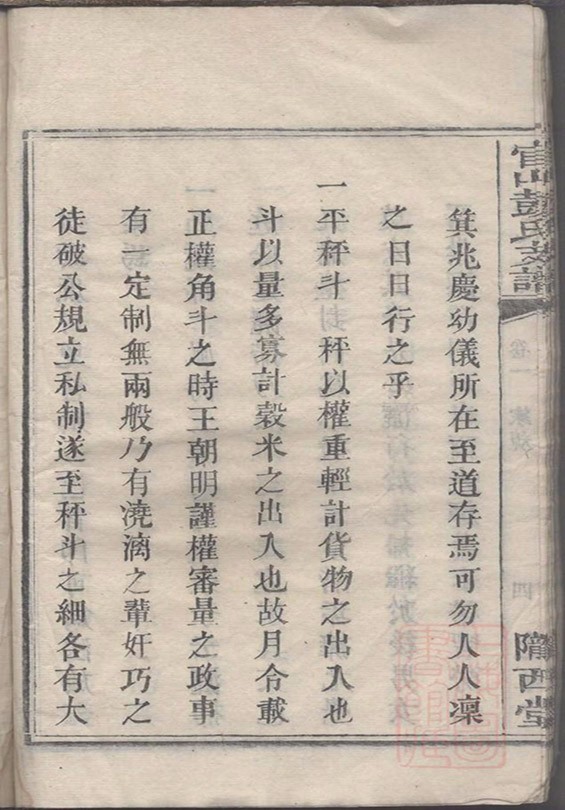 官山彭氏支譜
卷一
四
隴西堂
箕兆慶幼儀所在至道存焉可勿人人凜
之日日行之乎
一平秤斗 秤以權重輕計貨物之出入也
斗以量多寡計穀米之出入也故月令載
正權角斗之時王朝明謹權審量之政事
有一定制無兩般乃有澆漓之輩奸巧之
徒破公規立私制遂至秤斗之細各有大